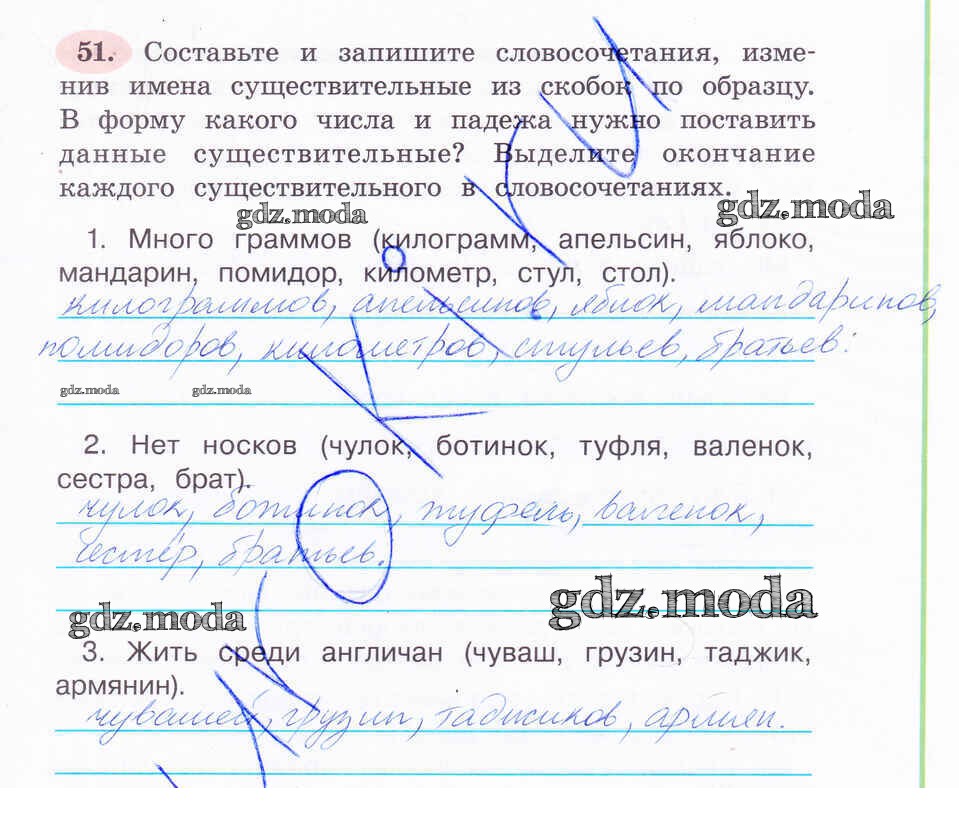 51. Составьте и запишите словосочетания, изме-
нив имена существительные из скобок по образцу.
В форму какого числа и падежа нужно поставить
данные существительные? Выделите окончание
каждого существительного в словосочетаниях.
gdz.moda
gdz.moda
1. Много граммов (килограмм, апельсин, яблоко,
мандарин, помидор, километр, стул, стол).
килограммов, апельсинов, яблок, мандаринов,
помидоров, километров, стульев, братьев:
gdz.moda
gdz.moda
2. Нет носков (чулок, ботинок, туфля, валенок,
сестра, брат).
чулок, ботинок, туфель, валенок,
сестёр, братьев.
gdz.moda
gdz.moda
3. Жить среди англичан (чуваш, грузин, таджик,
армянин).
чувашей, грузин, таджиков, армян.